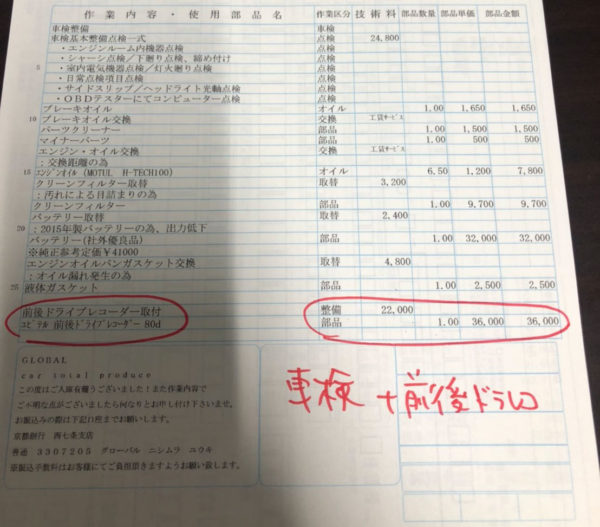 作業内容・使用部品名 作業区分 技術料 部品数量 部品単価 部品金額
車検整備 車検
車検基本整備点検一式 点検 24,800
・エンジンルーム内機器点検 点検
・シャーシ点検/下廻り点検、締め付け 点検
5 ・室内電気機器点検/灯火廻り点検 点検
・日常点検項目点検 点検
・サイドスリップ/ヘッドライト光軸点検 点検
・OBDテスターにてコンピューター点検 点検
ブレーキオイル オイル 1.00 1,650 1,650
10 ブレーキオイル交換 交換 工賃サービス
パーツクリーナー 部品 1.00 1,500 1,500
マイナーパーツ 部品 1.00 500 500
エンジン・オイル交換 交換 工賃サービス
:交換距離の為
15 エンジンオイル (MOTUL H-TECH100) オイル 6.50 1,200 7,800
クリーンフィルター取替 取替 3,200
:汚れによる目詰まりの為
クリーンフィルター 部品 1.00 9,700 9,700
バッテリー取替 取替 2,400
20 :2015年製バッテリーの為、出力低下
バッテリー(社外優良品) 部品 1.00 32,000 32,000
※純正参考定価¥41000
エンジンオイルパンガスケット交換 取替 4,800
:オイル漏れ発生の為
25 液体ガスケット 部品 1.00 2,500 2,500
前後ドライブレコーダー取付 整備 22,000
ユピテル 前後ドライブレコーダー 80d 部品 1.00 36,000 36,000
車検 +前後ドラレコ
GLOBAL
car total produce
この度はご入庫有難うございました!また作業内容で
ご不明な点がございましたら何なりとお申し付け下さいませ。
お振込みの際は下記口座までお願いします。
京都銀行 西七条支店
普通 3307205 グローバル ニシムラ ユウキ
※振込手数料はお客様にてご負担頂きますようお願い致します。